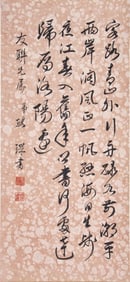 客路青山外行舟綠水前潮平
兩岸闊風正一帆懸海日生殘
夜江春入舊年鄉書何處達
歸雁洛陽邊
友聯兄屬 弟 書